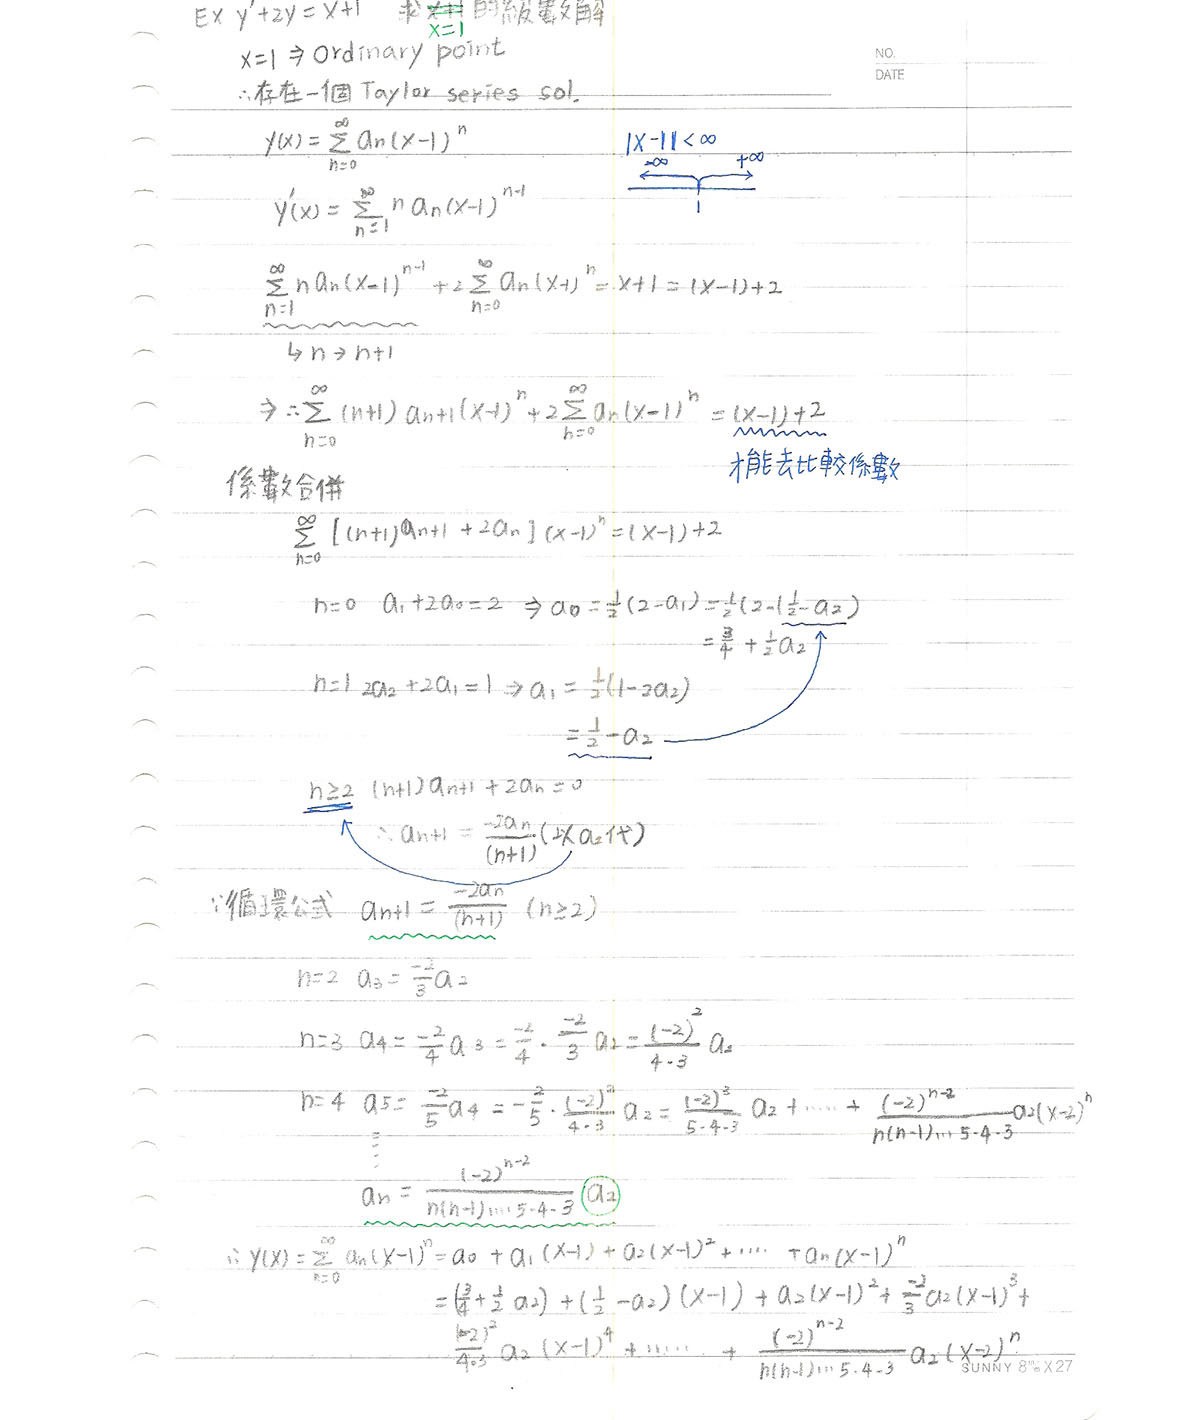 Ex y'+2y=x+1 求 x=1 的級數解
x=1 ⇒ Ordinary point
NO.
DATE
∴存在一個 Taylor series sol.
y(x) = ∑_{n=0}^{∞} an(x-1)^n
|x-1| < ∞
-∞ +∞
1
y'(x) = ∑_{n=1}^{∞} n an(x-1)^{n-1}
∑_{n=1}^{∞} n an(x-1)^{n-1} + 2∑_{n=0}^{∞} an(x-1)^n = x+1 = (x-1)+2
↳ n → n+1
⇒ ∴ ∑_{n=0}^{∞} (n+1) a_{n+1}(x-1)^n + 2∑_{n=0}^{∞} an(x-1)^n = (x-1)+2
才能去比較係數
係數合併
∑_{n=0}^{∞} [(n+1)a_{n+1} + 2an](x-1)^n = (x-1)+2
n=0 a1+2a0=2 ⇒ a0 = 1/2(2-a1) = 1/2(2-(1/2-a2)
= 3/4 + 1/2 a2
n=1 2a2+2a1=1 ⇒ a1 = 1/2(1-2a2)
= 1/2 - a2
n≥2 (n+1)a_{n+1} + 2an = 0
∴ a_{n+1} = -2an/(n+1) (以a2代)
∴循環公式 a_{n+1} = -2an/(n+1) (n≥2)
n=2 a3 = -2/3 a2
n=3 a4 = -2/4 a3 = -2/4 · -2/3 a2 = (-2)^2/(4·3) a2
n=4 a5 = -2/5 a4 = -2/5 · (-2)^2/(4·3) a2 = (-2)^3/(5·4·3) a2 + ····· + (-2)^{n-2}/(n(n-1)···5·4·3) a2(x-2)^n
an = (-2)^{n-2}/(n(n-1)···5·4·3) a2
∴ y(x) = ∑_{n=0}^{∞} an(x-1)^n = a0 + a1(x-1) + a2(x-1)^2 + ····· + an(x-1)^n
= (3/4 + 1/2 a2) + (1/2 - a2)(x-1) + a2(x-1)^2 + -2/3 a2(x-1)^3 +
(-2)^2/(4·3) a2(x-1)^4 + ······ + (-2)^{n-2}/(n(n-1)···5·4·3) a2(x-2)^n
SUNNY 8m/m X 27